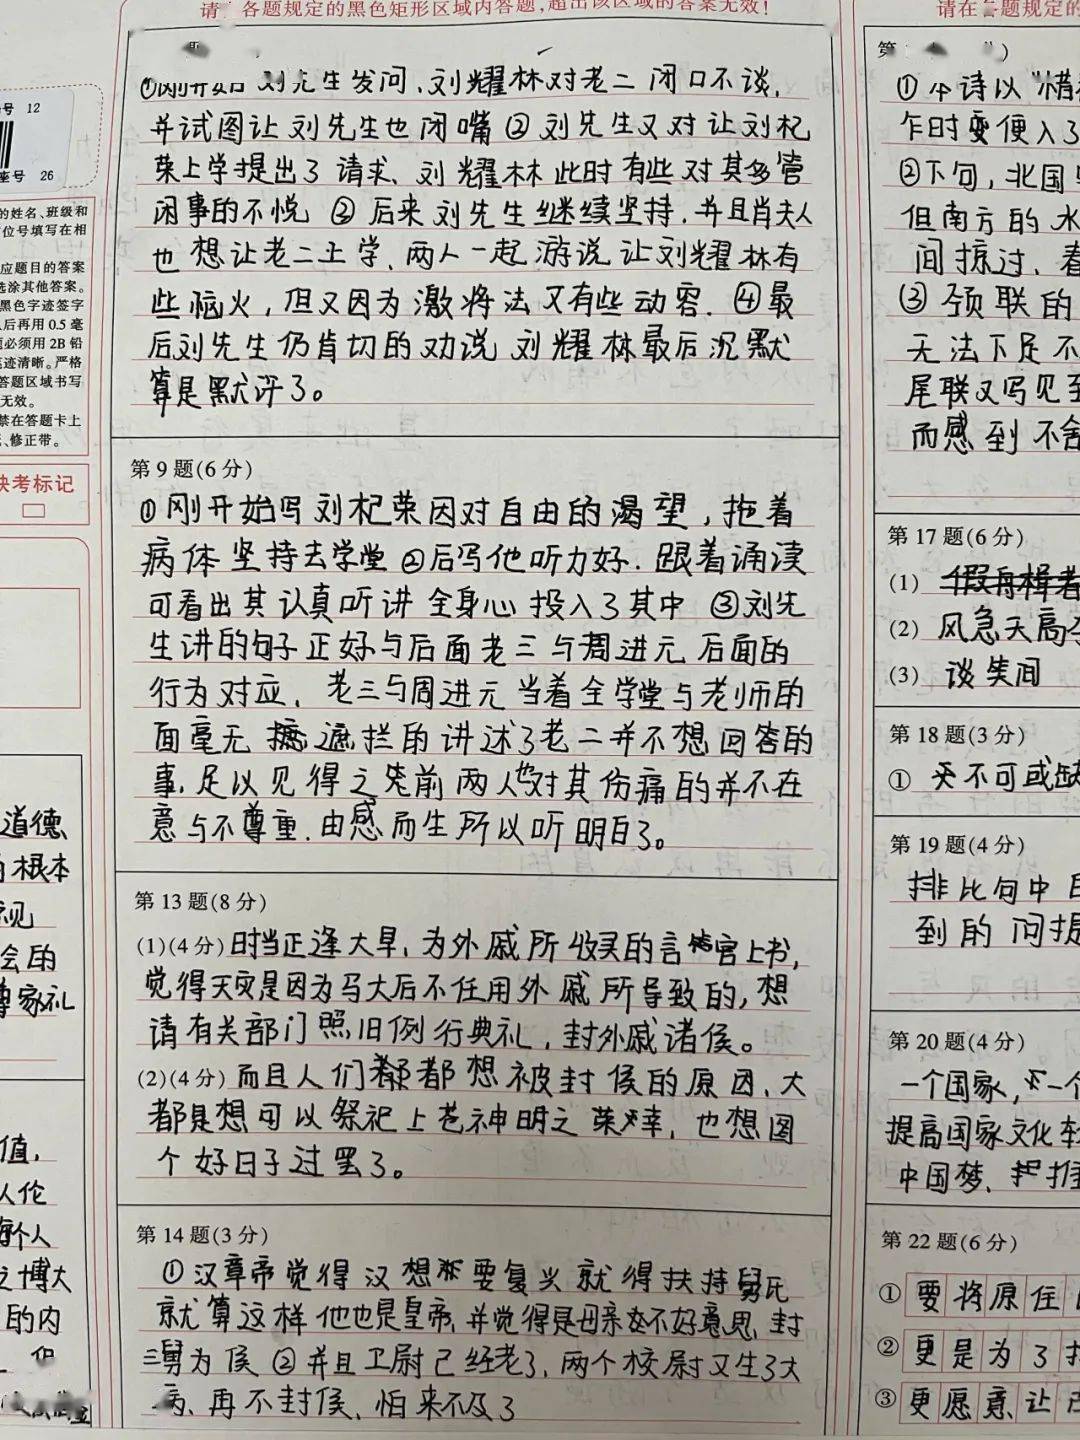 各题规定的黑色矩形区域内答题,超出该区域的答案无效!
①刚开始刘先生发问、刘耀林对老二闭口不谈,
并试图让刘先生也闭嘴②刘先生又对让刘杞
荣上学提出了请求、刘耀林此时有些对其多管
闲事的不悦③后来刘先生继续坚持.并且肖夫人
也想让老二上学、两人一起游说让刘耀林有
些恼火,但又因为激将法又有些动容.④最
后刘先生仍肯切的劝说刘耀林最后沉默
算是默许了。
第9题(6分)
①刚开始写刘杞荣因对自由的渴望,拖着
病体坚持去学堂②后写他听力好.跟着诵读
可看出其认真听讲全身心投入了其中③刘先
生讲的句子正好与后面老三与周进元后面的
行为对应.老三与周进元当着全学堂与老师的
面毫无遮拦的讲述了老二并不想回答的
事,足以见得之前两人也对其伤痛的并不在
意与不尊重.由感而生所以听明白了。
第13题(8分)
(1)(4分)时当正逢大旱,为外戚所收买的言官上书,
觉得天灾是因为马大后不任用外戚所导致的,想
请有关部门照旧例行典礼,封外戚诸侯。
(2)(4分)而且人们都想被封侯的原因、大
都是想可以祭祀上苍神明之荣幸,也想图
个好日子过罢了。
第14题(3分)
①汉章帝觉得汉想要复兴就得扶持舅氏
就算这样他也是皇帝,并觉得是母亲不好意思封
三舅为侯②并且卫尉已经老了,两个校尉又生了大
病、再不封侯、怕来不及了
号 12
座号 26
的姓名、班级和
位号填写在相
应题目的答案
选涂其他答案。
黑色字迹签字
后再用0.5毫
必须用2B铅
迹清晰。严格
答题区域书写
无效。
禁在答题卡上
、修正带。
缺考标记
道德、
根本
会的
家礼
值,
人伦
个人
博大
的内
请在各题规定的
①本诗以"情
乍时变便入了
②下句,北国
但南方的水
间掠过、春
③颈联的
无法下足不
尾联又写见至
而感到不舍
第17题(6分)
(1)
(2)风急天高
(3)谈笑间
第18题(3分)
①不可或缺
第19题(4分)
排比句中
到的问提
第20题(4分)
一个国家,不一个
提高国家文化软
中国梦、
第22题(6分)
①要将原住
②更是为了
③更愿意让